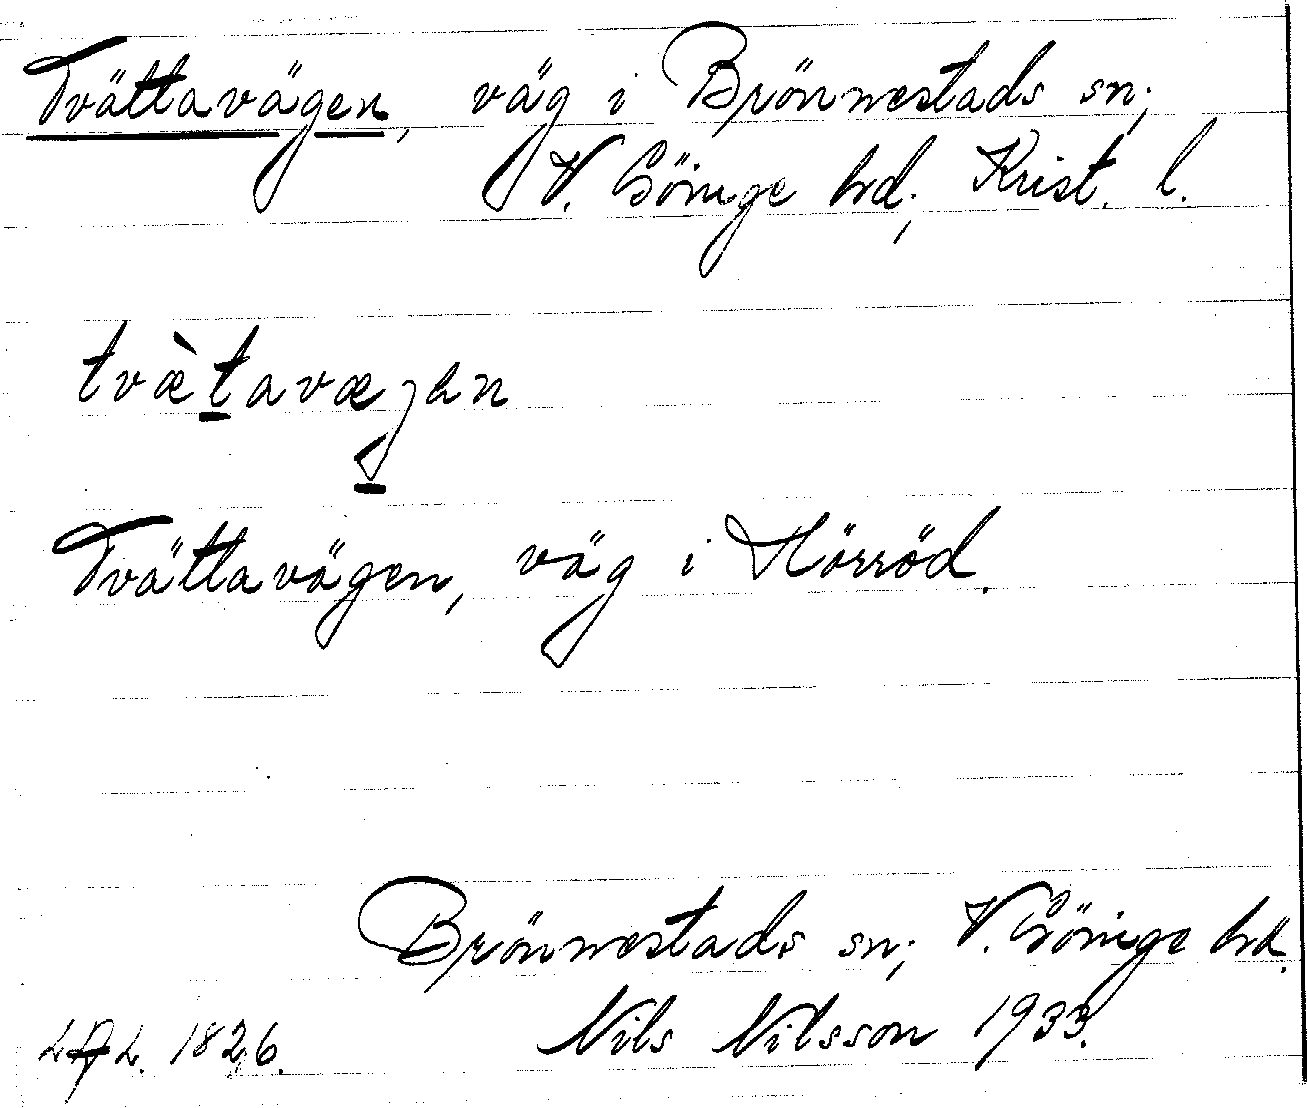 Tvättavägen, väg i Brönnestads sn;
V. Göinge hd; Krist. l.
tvætavægen
Tvättavägen, väg i Hörröd.
Brönnestads sn; V. Göinge hd.
Nils Nilsson 1933.
1826.